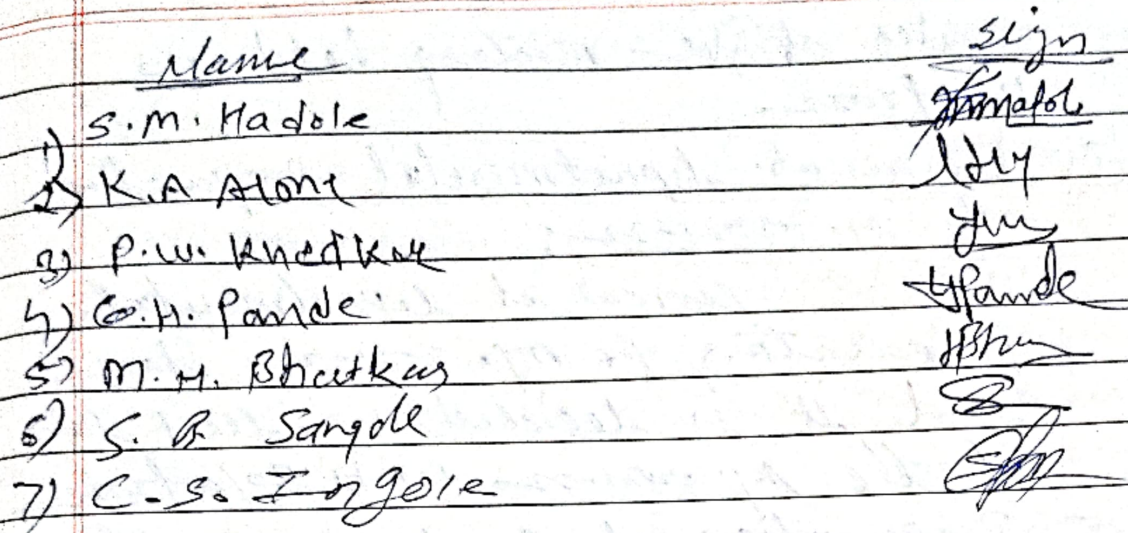 Name Sign
1) S.M. Hadole
2) K.A Alone
3) P.W. Khedkar
4) G.H. Pande Pande
5) M.H. Bhatkar
6) S. B. Sangole
7) C.S. Ingole